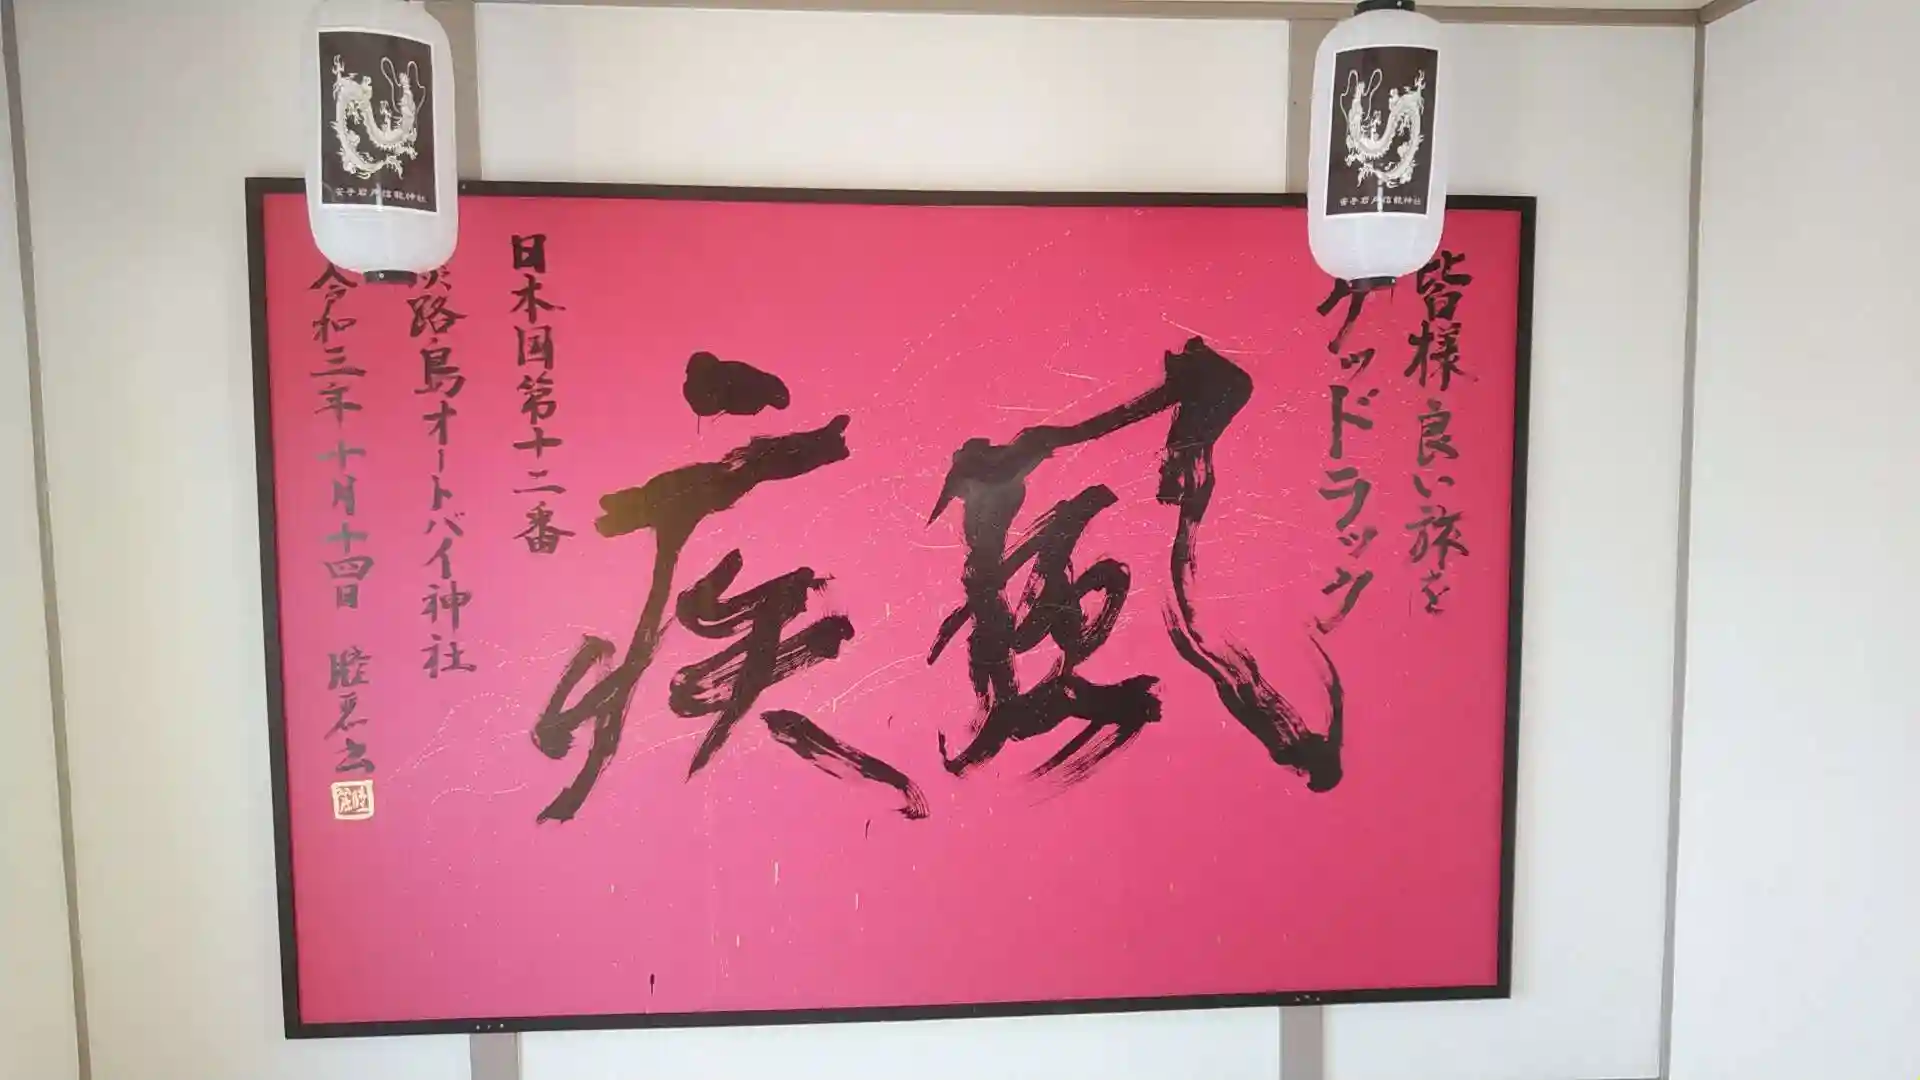 皆様良い旅を
グッドラック
風疾
日本国第十二番
淡路島オートバイ神社
令和三年十月十四日
安乎岩戸信龍神社
安乎岩戸信龍神社